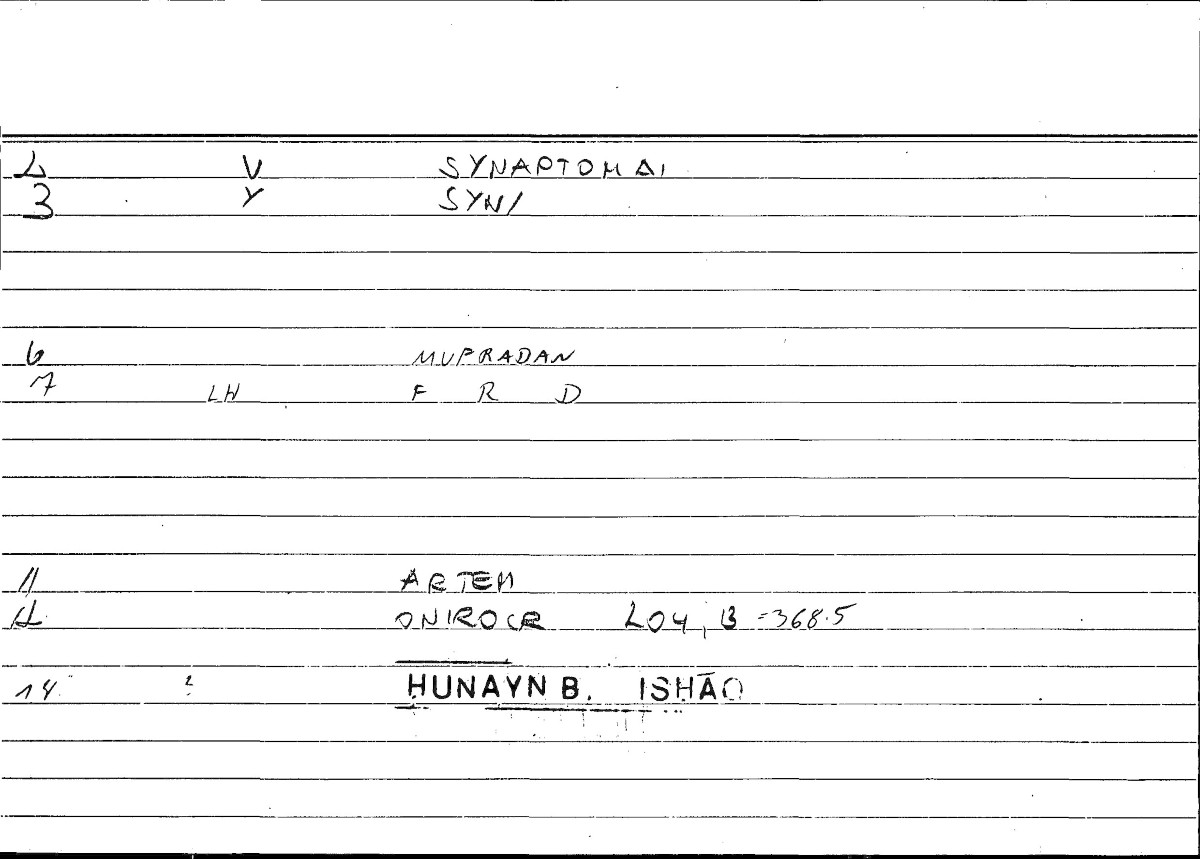 2 V SYNAPTOMAI
3 Y SYN/
6 MUPRADAN
7 LH F R D
11 ARTEM
12 ONIROCR 204, 13 = 368.5
14 2 ḤUNAYN B. ISḤĀQ